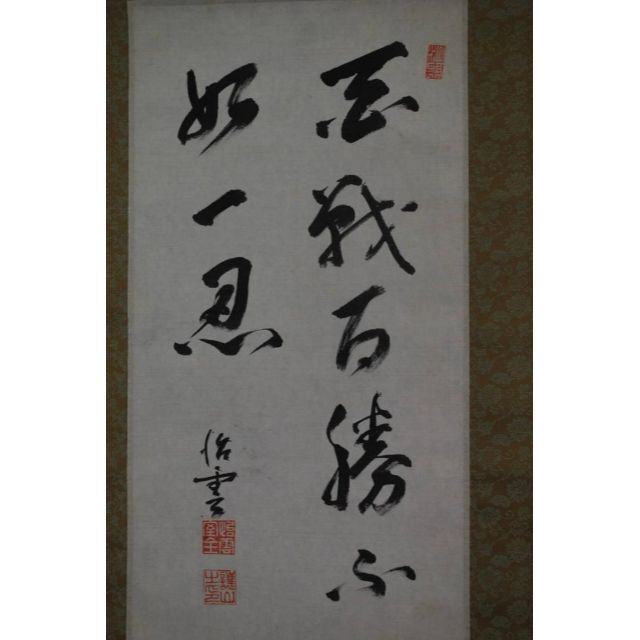 百戦百勝不
如一忍
怡雲